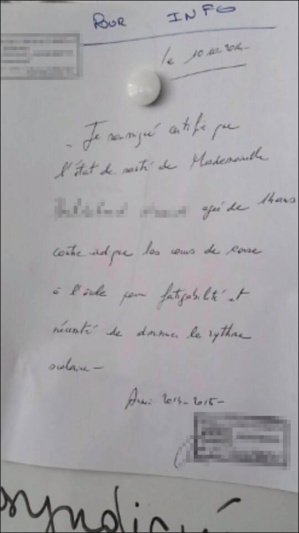 POUR INFO
le 10.10.2014
Je soussigné certifie que
l'état de santé de Mademoiselle
agée de 14 ans
contre indique les cours de
à l'école pour fatigabilité et
nécessité de diminuer le rythme
scolaire -
Année 2014-2015 -
syndiqué